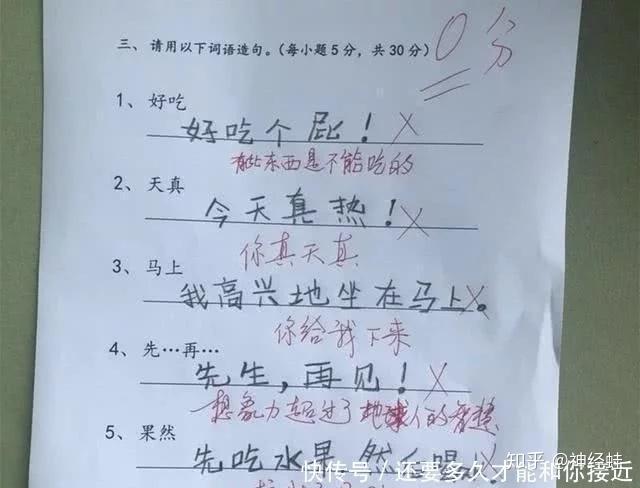 三、请用以下词语造句。(每小题5分，共30分) 0分
1、好吃
好吃个屁！
有些东西是不能吃的
2、天真
今天真热！
你真天真
3、马上
我高兴地坐在马上。
你给我下来
4、先…再…
先生，再见！
想象力超过了地球人的智慧
5、果然
先吃水果，然后喝
知乎 @神经蛙
快传号/还要多久才能和你接近